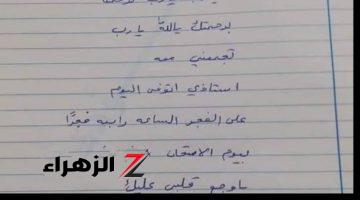 برحمتك ياالله يارب
تجمعني معه
استاذي اتوفى اليوم
على الفجر الساعه رابعه فجرًا
بيوم الامتحان
ياوجع قلبي عليك
الزهراء